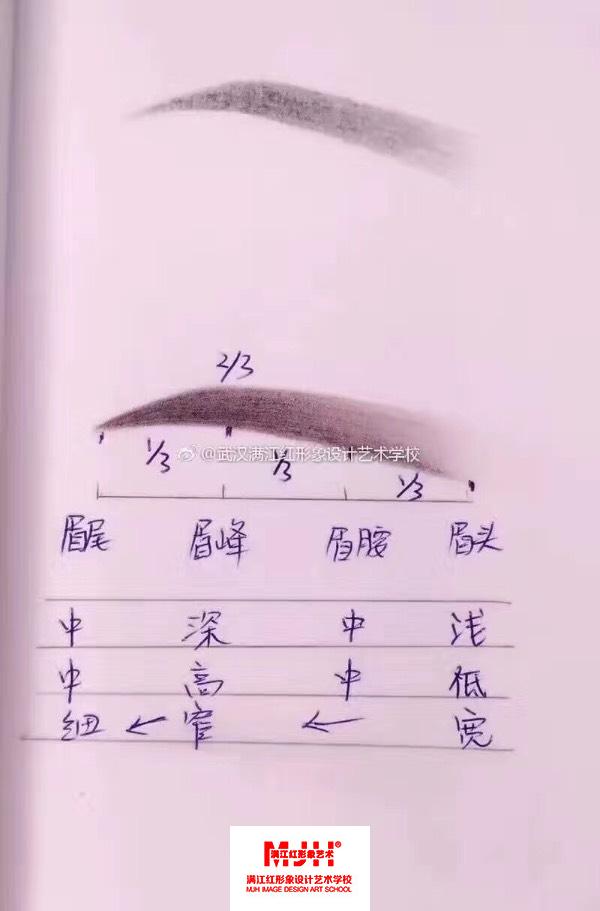 2/3
1/3
@武汉满江红形象设计艺术学校
1/3
1/3
眉尾 眉峰 眉腰 眉头
中 深 中 浅
中 高 中 低
细 ← 窄 ← 宽
MJH®
满江红形象艺术
满江红形象设计艺术学校
MJH IMAGE DESIGN ART SCHOOL